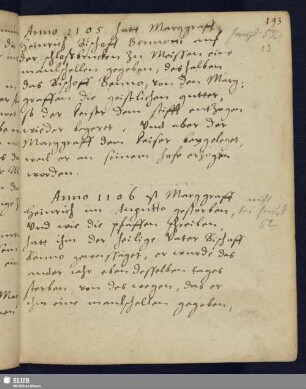 193
Anno 1105 hatt Marggraff
Heinrich Bischoff Bennoni auff
der schlosbrucken zu Meissen eine
maulschellen gegeben, deshalben
das Bischoff Benno von den Marg:
graffen die geistlichen gutter,
so der keiser dem stifft entzogen
wieder begeret, Und aber der
Marggraff dem keiser beygeleget,
weil er an seinem hofe erzogen
worden.
Anno 1106 ist Marggraff
Heinrich im Augusto gestorben,
Und wie die pfaffen schreiben,
hatt ihm der heilige Vater Bischoff
Benno geweissaget, er wurde das
ander jahr eben desselben tages
sterben, von des wegen, das er
ihm eine maulschellen gegeben,
SLUB